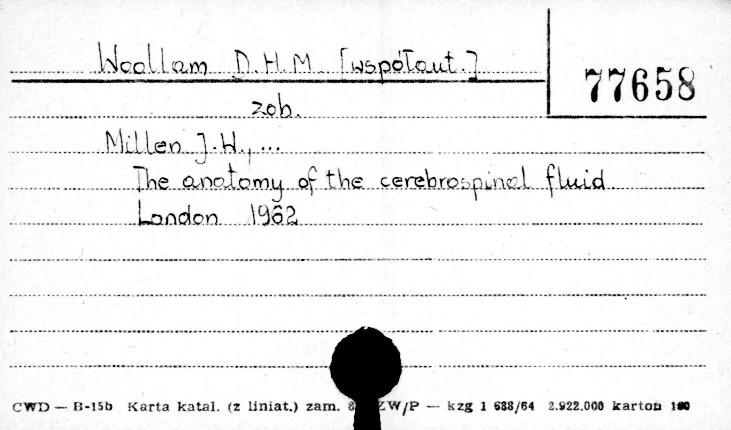 Woollam D.H.M [współaut.]
77658
zob.
Millen J.W., ...
The anatomy of the cerebrospinal fluid
London 1962
CWD — B-15b Karta katal. (z liniat.) zam. ZW/P — kzg 1 688/64 2.922.000 karton